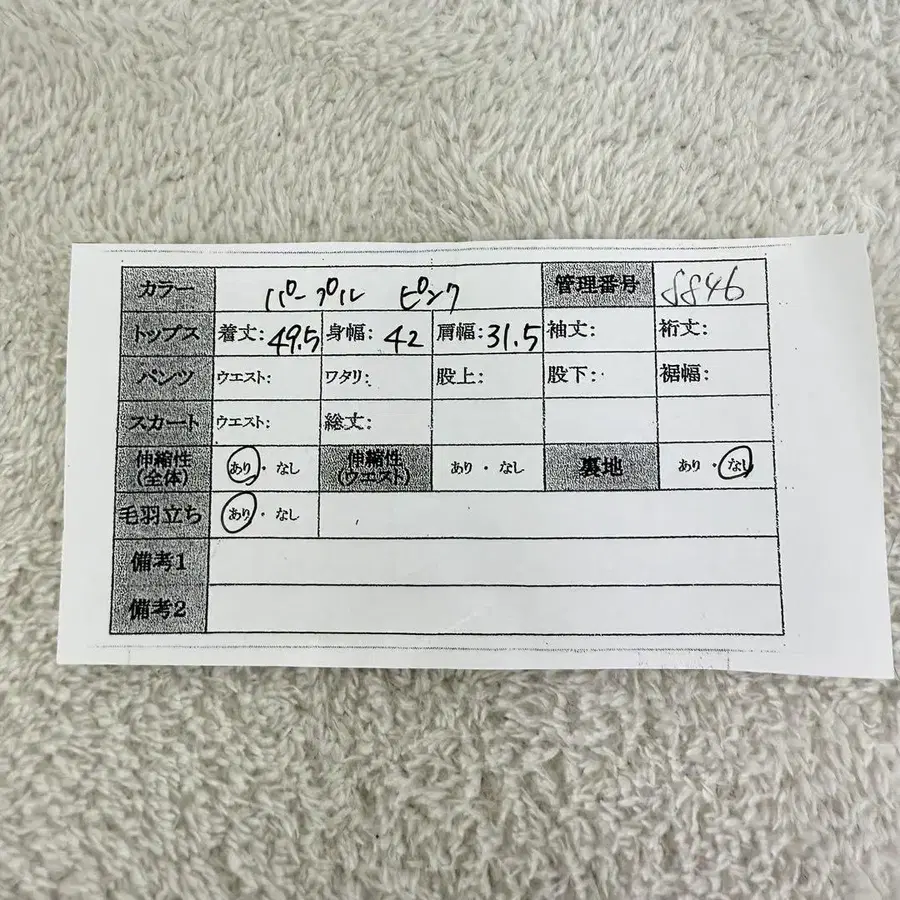 カラー パープル ピンク 管理番号 8846
トップス 着丈: 49.5 身幅: 42 肩幅: 31.5 袖丈: 裄丈:
パンツ ウエスト: ワタリ: 股上: 股下: 裾幅:
スカート ウエスト: 総丈:
伸縮性(全体) あり・なし 伸縮性(ウエスト) あり・なし 裏地 あり・なし
毛羽立ち あり・なし
備考1
備考2